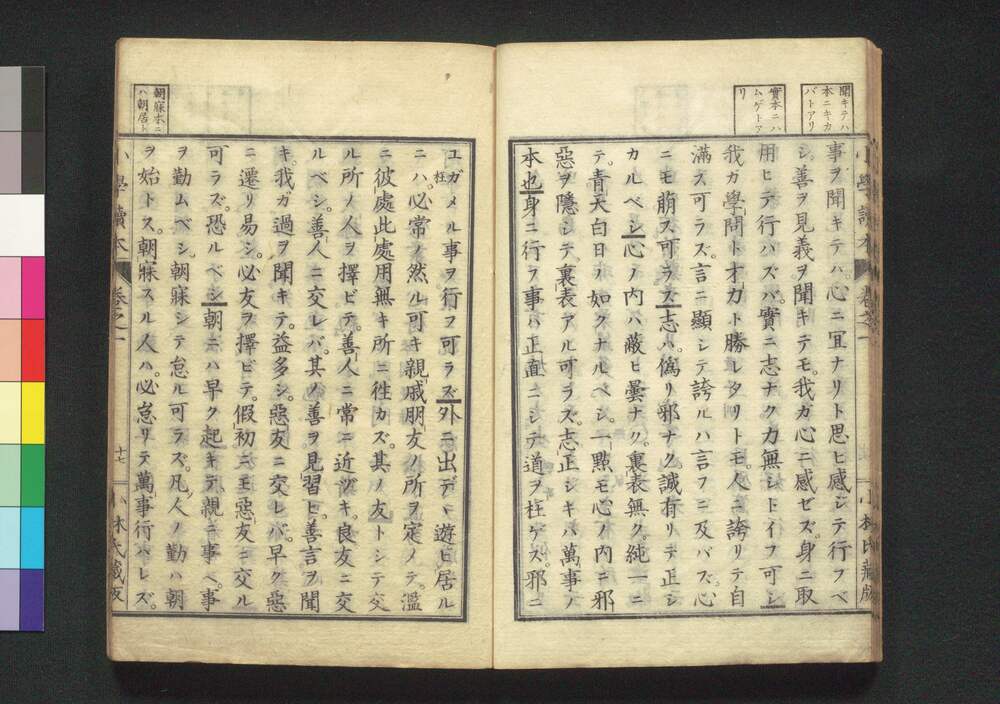 聞キテハ
本ニキカ
バトアリ
實本ニハ
ムゲトア
リ
事ヲ聞キテハ。心ニ冝ナリト思ヒ感シテ行フベ
シ。善ヲ見義ヲ聞キテモ。我ガ心ニ感ゼズ。身ニ取
用ヒテ行ハズバ。實ニ志ナク力無シトイフ可シ
我ガ學問ト才力ト勝レタリトモ。人ニ誇リテ自
滿ス可ラズ。言ニ顯シテ誇ルハ言フニ及バズ。心
ニモ萠ス可ラズ志ハ。僞リ邪ナク誠有リテ正シ
カルベシ心ノ内ハ蔽ヒ曇ナク。裏表無ク。純一ニ
テ。青天白日ノ如クナルベシ。一點モ心ノ内ニ邪
惡ヲ隱シテ。裏表アル可ラズ。志正シキハ萬事ノ
本也身ニ行フ事ハ正直ニシテ道ヲ枉ゲズ。邪ニ
小學讀本
卷之一
小林氏藏版
朝寐本ニ
ハ朝居ト
エガメル事ヲ行フ可ラズ外ニ出デヽ遊ビ居ル
枉
ニハ。必常ノ然ル可キ親戚朋友ノ所ヲ定メテ。濫
ニ彼處此處用無キ所ニ徃カズ。其ノ友トシテ交
ル所ノ人ヲ擇ビテ。善人ニ常ニ近ヅキ。良友ニ交
ルベシ。善人ニ交レバ。其ノ善ヲ見習ヒ。善言ヲ聞
キ。我ガ過ヲ聞キテ。益多シ。惡友ニ交レバ。早ク惡
ニ遷リ易シ。必友ヲ擇ビテ。假初ニモ惡友ニ交ル
可ラズ。恐ルベシ朝ニハ早ク起キテ親ニ事ヘ。事
ヲ勤ムベシ。朝寐シテ怠ル可ラズ。凡人ノ勤ハ朝
ヲ始トス。朝寐スル人ハ。必怠リテ萬事行ハレズ。
小學讀本
卷之一
十七
小林氏藏版